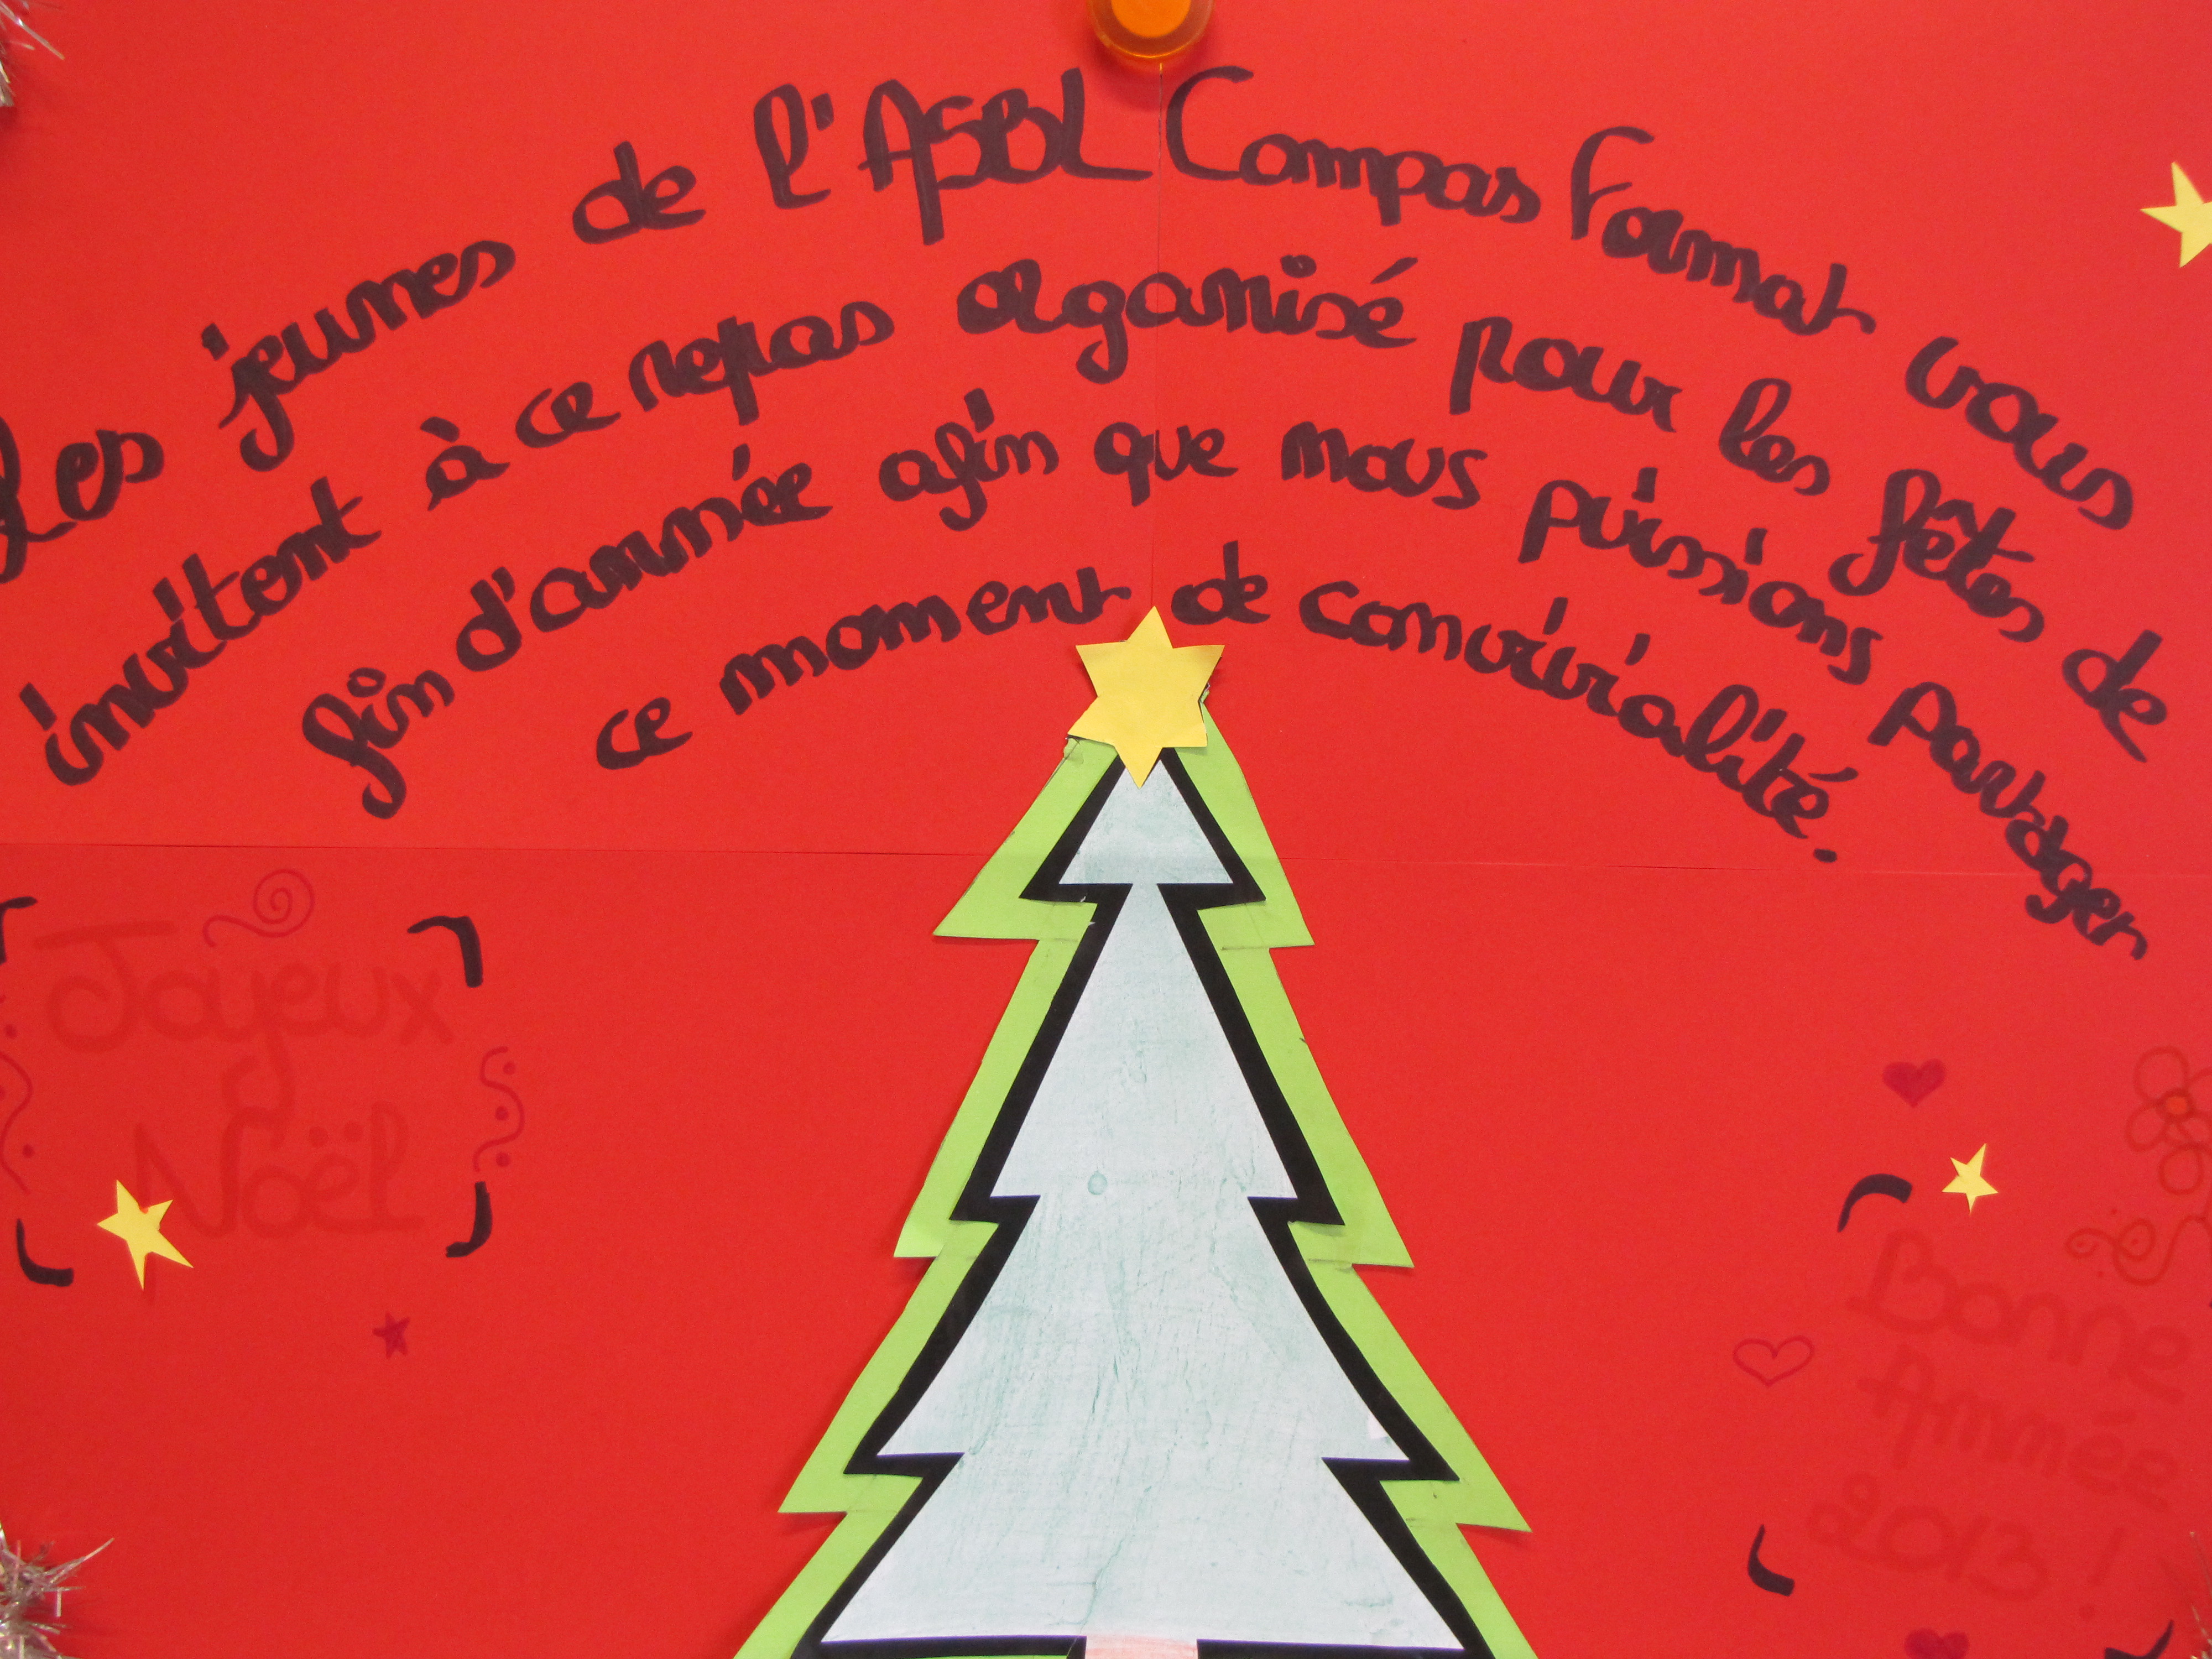 Les jeunes de l'ASBL Compas Format vous
invitent à ce repas organisé pour les fêtes de
fin d'année afin que nous puissions partager
ce moment de convivialité.
Joyeux
Noël
Bonne
Année
2013 !